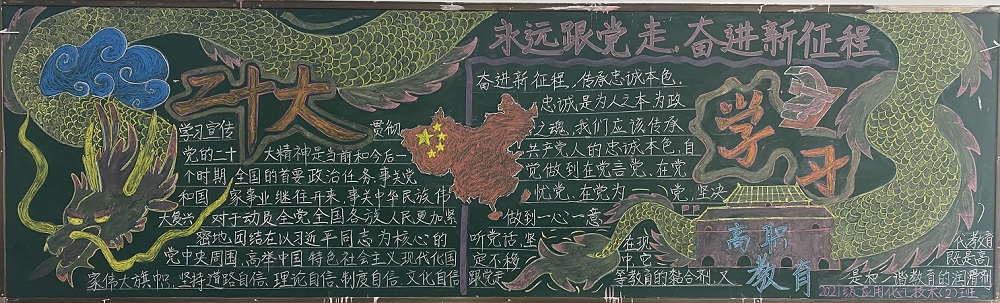 永远跟党走,奋进新征程
二十大
学习宣传 贯彻
党的二十 大精神是当前和今后一
个时期,全国的首要政治任务,事关党
和国 家事业继往开来,事关中华民族伟
大复兴 对于动员全党全国各族人民更加紧
密地团结在以习近平同志为核心的
党中央周围,高举中国特色社会主义现代化国
家伟大旗帜,坚持道路自信、理论自信、制度自信、文化自信
奋进新征程,传承忠诚本色,
忠诚是为人之本,为政
之魂,我们应该传承
共产党人的忠诚本色,自
觉做到在党言党、在党
忧党、在党为 党,坚决
做到一心一意
听党话,坚
定不移
跟党走
学习
高职
教育
在现 代教育
中,它 既是高
等教育的黏合剂,又 是和谐教育的润滑剂
2021级应用化工技术(2)班